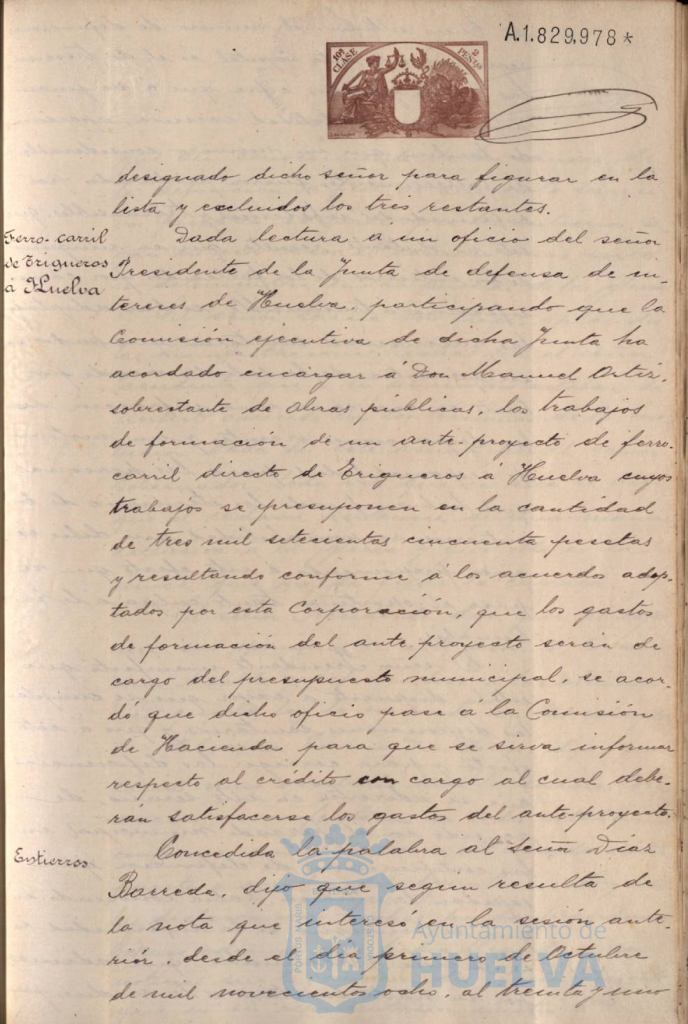 A.1.829,978*
10ª CLASE
2 PESETAS
designado dicho señor para figurar en la
lista y excluidos los tres restantes.
Ferro-carril
de Trigueros
á Huelva
Dada lectura a un oficio del señor
Presidente de la Junta de defensa de in-
tereses de Huelva, participando que la
Comisión ejecutiva de dicha Junta ha
acordado encargar á Don Manuel Ortiz,
sobrestante de obras públicas, los trabajos
de formación de un ante-proyecto de ferro-
carril directo de Trigueros á Huelva cuyos
trabajos se presuponen en la cantidad
de tres mil setecientas cincuenta pesetas
y resultando conforme á los acuerdos adop-
tados por esta Corporación, que los gastos
de formación del ante-proyecto serán de
cargo del presupuesto municipal, se acor-
dó que dicho oficio pase á la Comisión
de Hacienda para que se sirva informar
respecto al crédito con cargo al cual debe-
rán satisfacerse los gastos del ante-proyecto.
Entierros
Concedida la palabra al señor Díaz
Barreda, dijo que segun resulta de
la nota que interesó en la sesión ante-
riór, desde el día primero de Octubre
de mil novecientos ocho, al treinta y uno
PORTUS MARIS
CUSTODIA
Ayuntamiento de
HUELVA